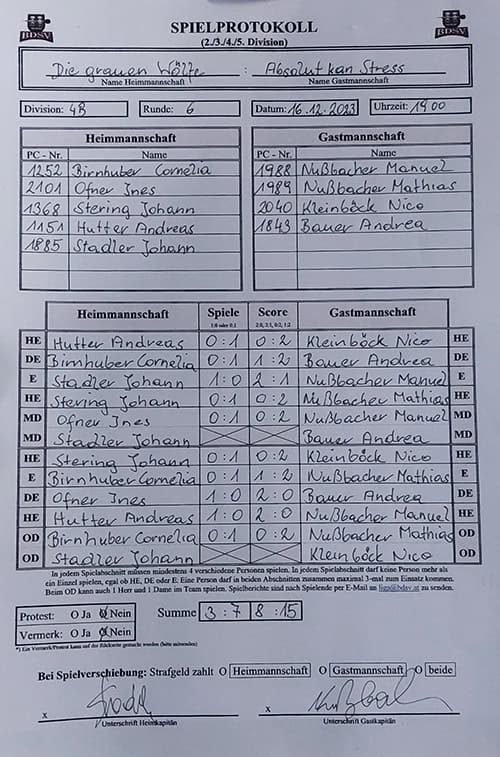 BDSV SPIELPROTOKOLL BDSV
(2./3./4./5. Division)
Die grauen Wölfe : Absolut kan Stress
Name Heimmannschaft Name Gastmannschaft
Division: 4B Runde: 6 Datum: 16.12.2023 Uhrzeit: 1900
Heimmannschaft Gastmannschaft
PC - Nr. Name PC - Nr. Name
1252 Birnhuber Cornelia 1988 Nußbacher Manuel
2101 Ofner Ines 1989 Nußbacher Mathias
1368 Stering Johann 2040 Kleinböck Nico
1151 Hutter Andreas 1843 Bauer Andrea
1885 Stadler Johann
Heimmannschaft Spiele Score Gastmannschaft
1:0 oder 0:1 2:0, 2:1, 0:2, 1:2
HE Hutter Andreas 0:1 0:2 Kleinböck Nico HE
DE Birnhuber Cornelia 0:1 1:2 Bauer Andrea DE
E Stadler Johann 1:0 2:1 Nußbacher Manuel E
HE Stering Johann 0:1 0:2 Nußbacher Mathias HE
MD Ofner Ines 0:1 0:2 Nußbacher Manuel MD
MD Stadler Johann Bauer Andrea MD
HE Stering Johann 0:1 0:2 Kleinböck Nico HE
E Birnhuber Cornelia 0:1 1:2 Nußbacher Mathias E
DE Ofner Ines 1:0 2:0 Bauer Andrea DE
HE Hutter Andreas 1:0 2:0 Nußbacher Manuel HE
OD Birnhuber Cornelia 0:1 0:2 Nußbacher Mathias OD
OD Stadler Johann Kleinböck Nico OD
In jedem Spielabschnitt müssen mindestens 4 verschiedene Personen spielen. In jedem Spielabschnitt darf keine Person mehr als
ein Einzel spielen, egal ob HE, DE oder E. Eine Person darf in beiden Abschnitten zusammen maximal 3-mal zum Einsatz kommen.
Beim OD kann auch 1 Herr und 1 Dame im Team spielen. Spielberichte sind nach Spielende per E-Mail an liga@bdsv.at zu senden.
Protest: O Ja O Nein Summe 3:7 8:15
Vermerk: O Ja O Nein
*) Ein Vermerk/Protest kann auf der Rückseite gemacht werden (bitte ankreuzen)
Bei Spielverschiebung: Strafgeld zahlt O Heimmannschaft O Gastmannschaft O beide
x x
Unterschrift Heimkapitän Unterschrift Gastkapitän